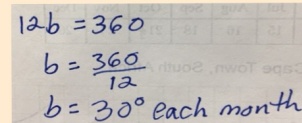 12b = 360
b = 360/12
b = 30° each month